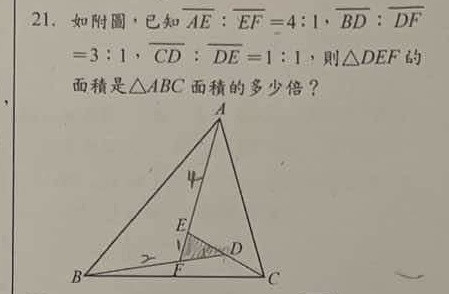 21. 如附圖，已知 AE：EF=4：1，BD：DF
=3：1，CD：DE=1：1，則△DEF 的
面積是△ABC 面積的多少倍？
A
4
E
1
D
2
F
B
C